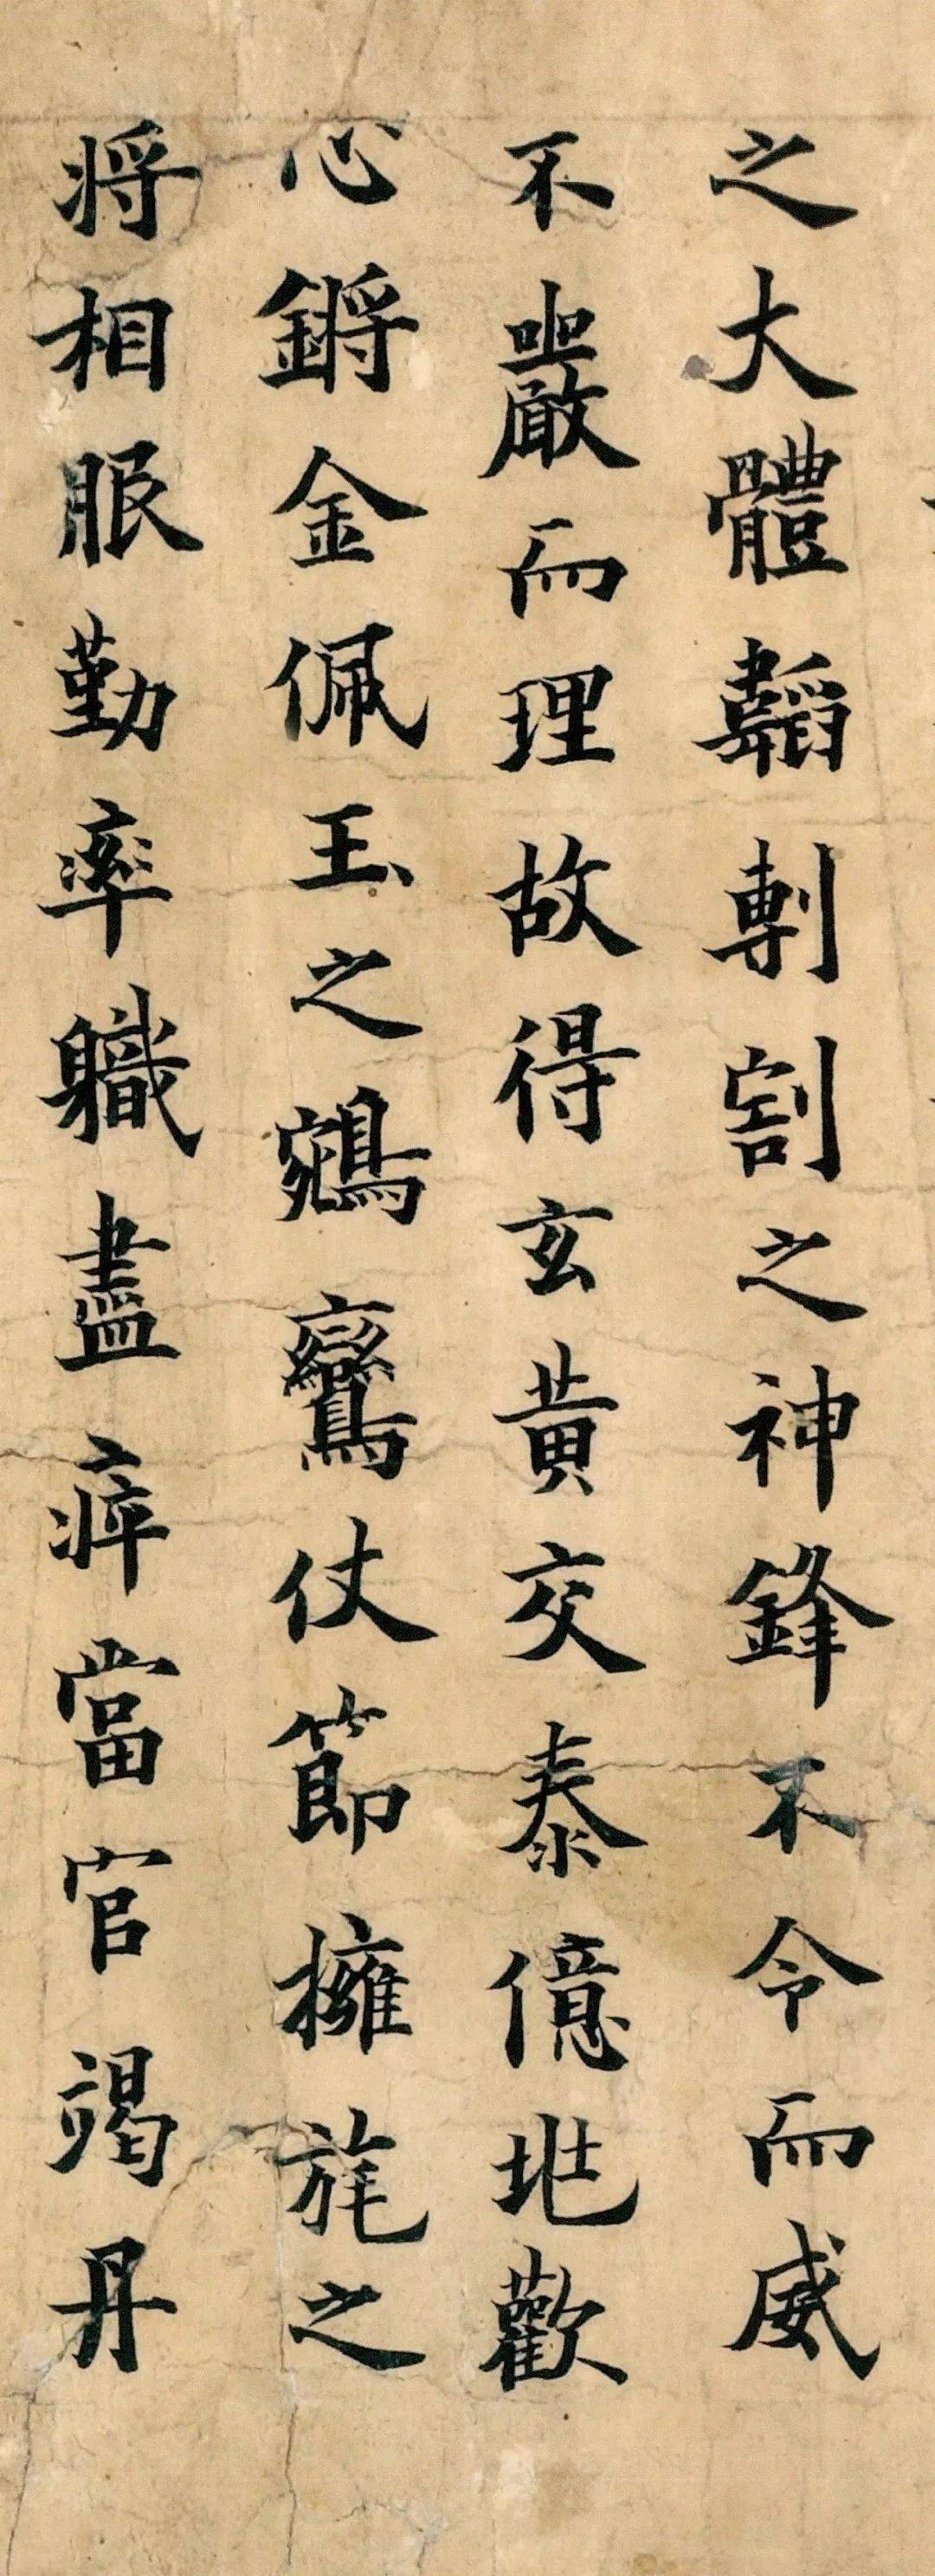 之大體韜剸割之神鋒不令而威
不嚴而理故得玄黃交泰億兆歡
心鏘金佩玉之鵷鸞仗節擁旄之
將相服勤率職盡瘁當官竭丹